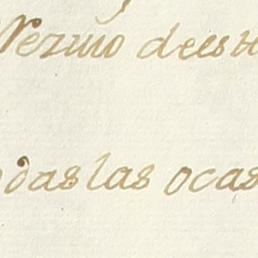 Vezino deest
odas las ocas